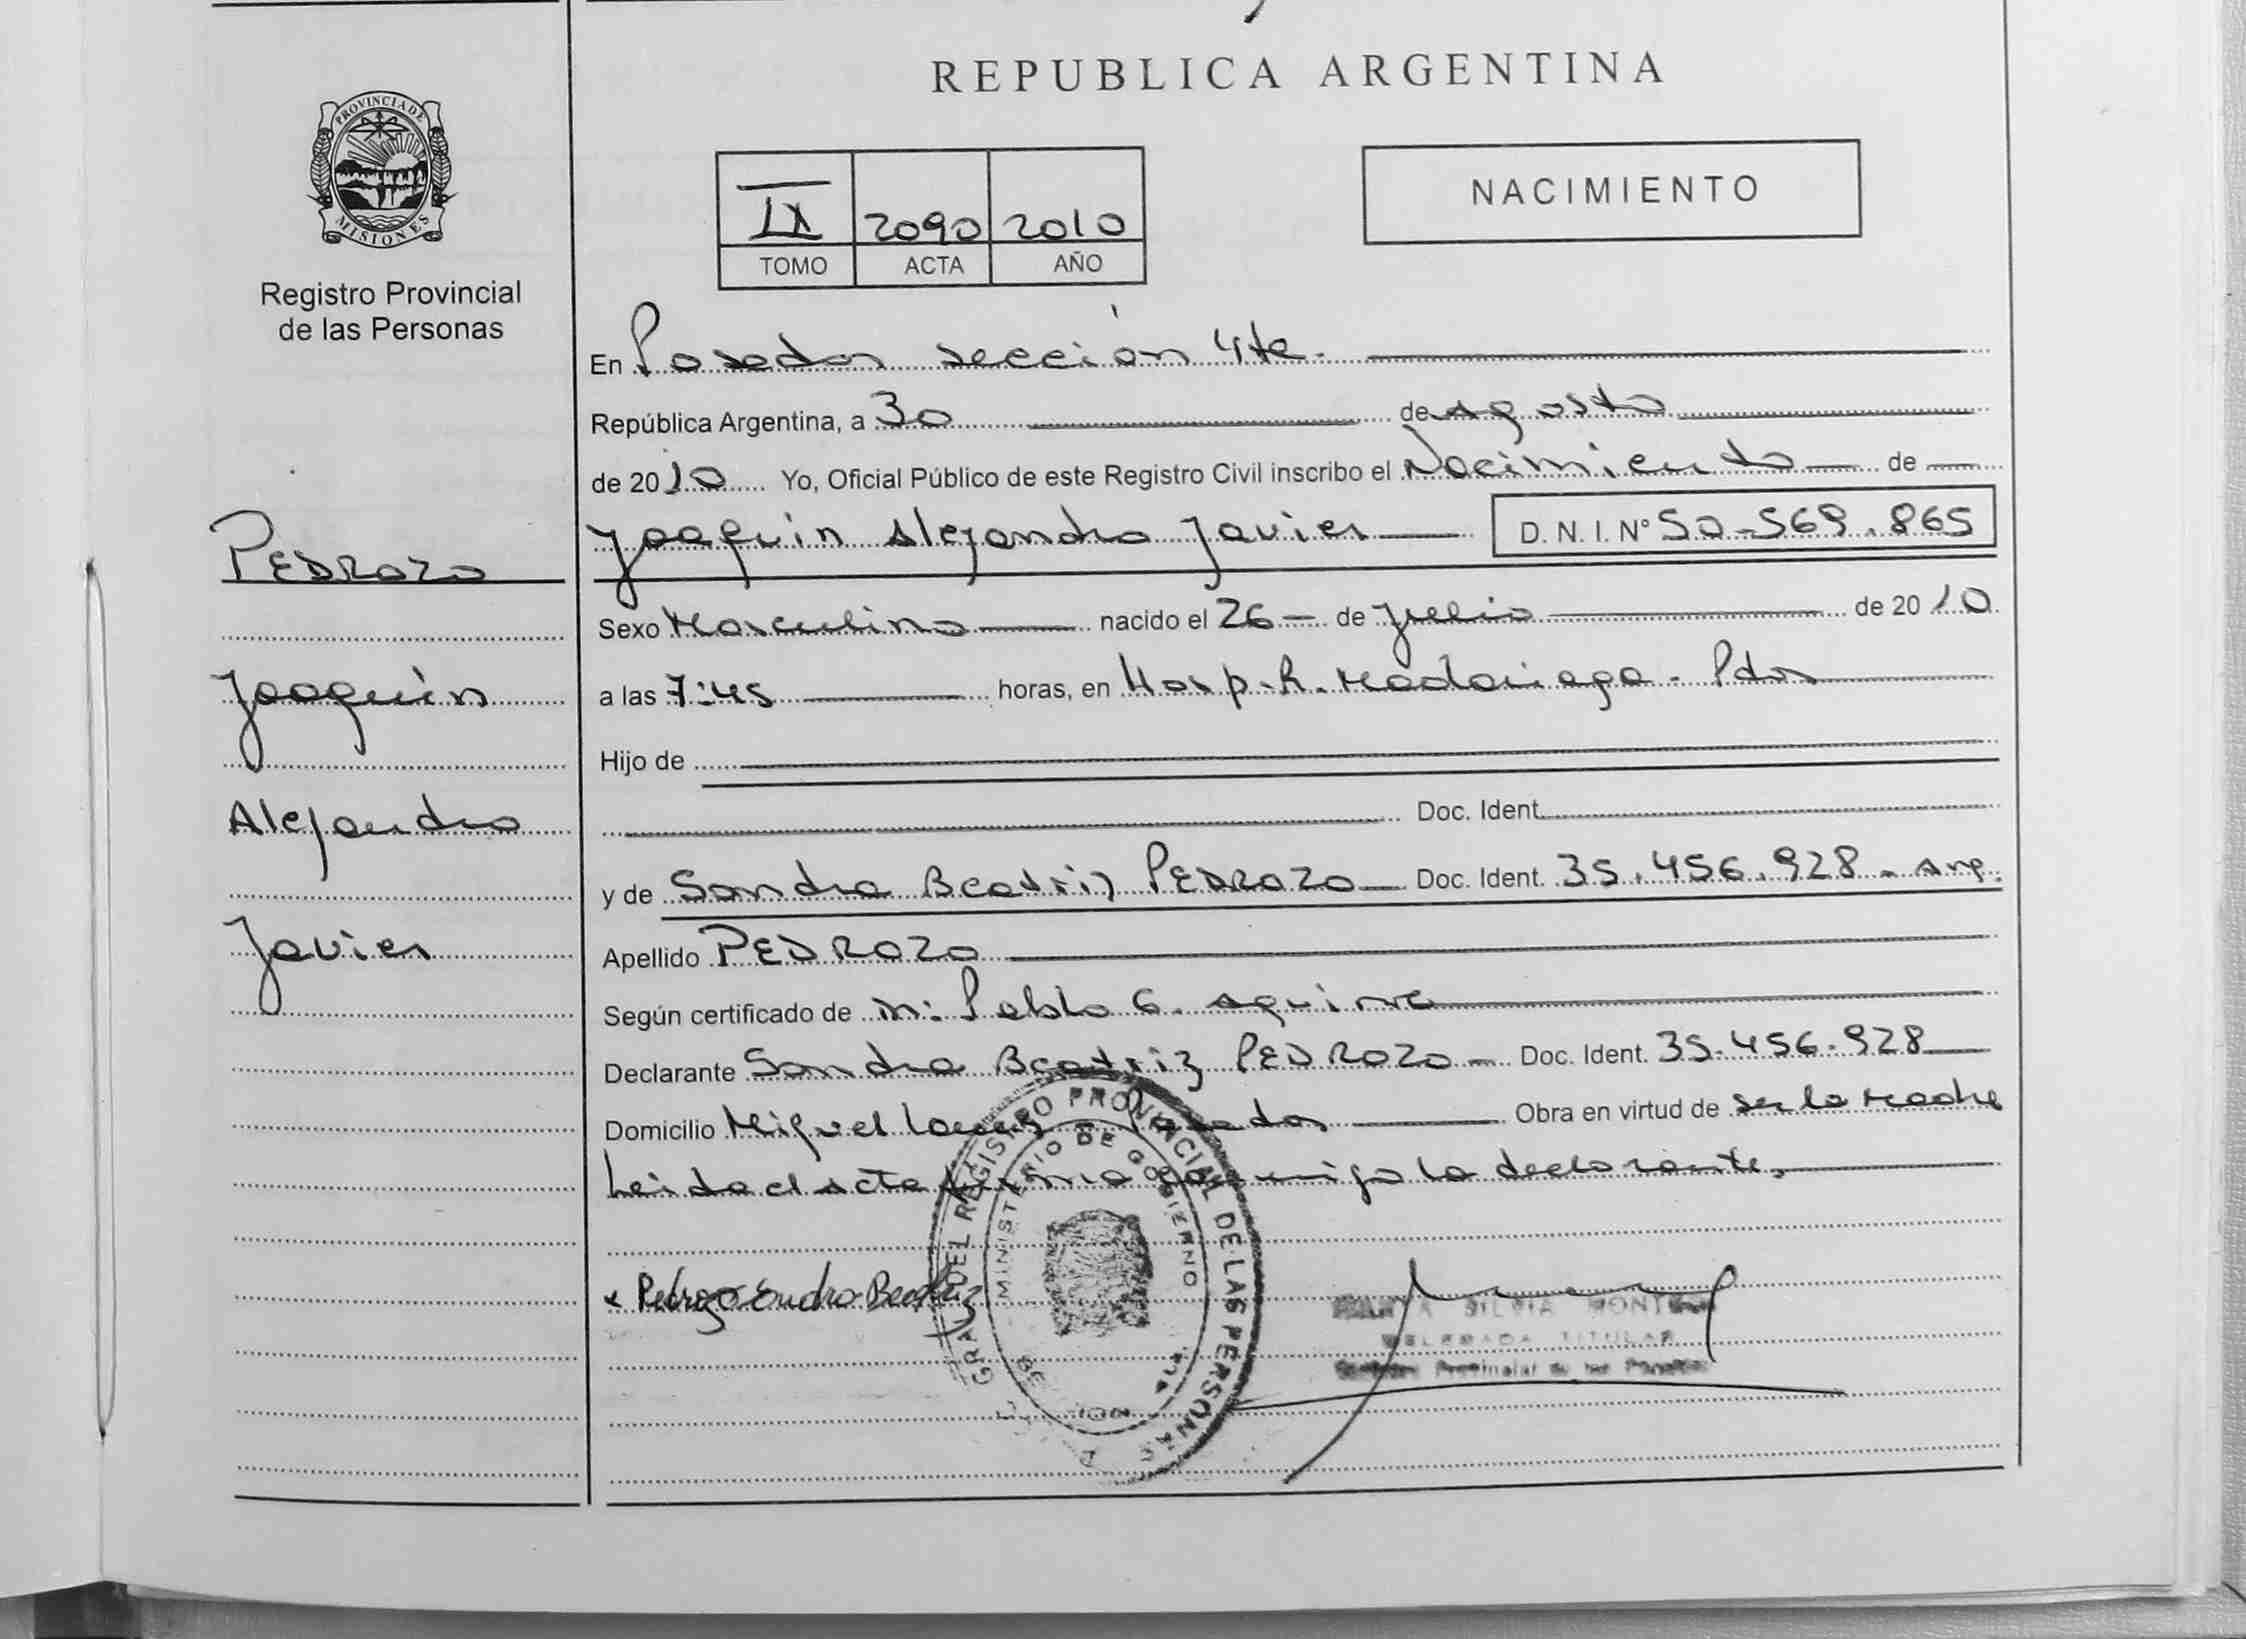 REPUBLICA ARGENTINA
PROVINCIA DE
MISIONES
Registro Provincial
de las Personas
NACIMIENTO
IX 2090 2010
TOMO ACTA AÑO
En Posadas sección 4ta.
República Argentina, a 30 de agosto
de 2010 Yo, Oficial Público de este Registro Civil inscribo el Nacimiento de
PEDROZO
Joaquin Alejandro Javier D. N. I. Nº 50-569.865
Sexo Masculino nacido el 26 de julio de 2010
Joaquin
a las 7:45 horas, en Hosp. R. Madariaga - Pdas
Hijo de
Alejandro
Doc. Ident.
y de Sandra Beatriz PEDROZO Doc. Ident. 35.456.928 - Arg.
Javier
Apellido PEDROZO
Según certificado de m: Pablo G. Aguirre
Declarante Sandra Beatriz PEDROZO Doc. Ident. 35.456.928
Domicilio Miguel Posadas Obra en virtud de ser la madre
Leida el acta firma conmigo la declarante.
GRAL DEL REGISTRO PROVINCIAL DE LAS PERSONAS
MINISTERIO DE GOBIERNO
x Pedrozo Sandra Beatriz
SILVIA
DELEGADA TITULAR
Provincial de las Personas